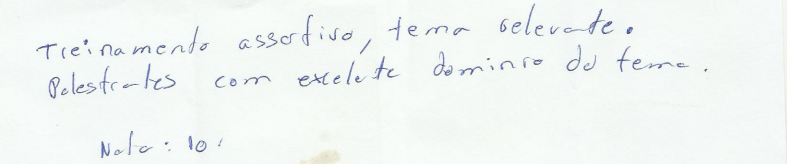 Treinamento assertivo, tema relevante.
Palestrantes com excelente dominio do tema.
Nota: 10.